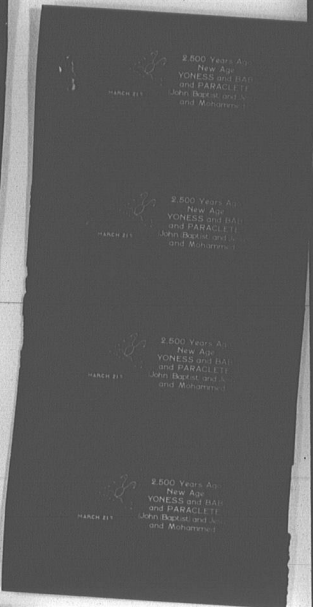 2,500 Years Ag
New Age
YONESS and BAB
and PARACLETE
John Baptist, and
and Mohammed
MARCH 21
2,500 Years Ag
New Age
YONESS and BAB
and PARACLETE
John Baptist, and Je
and Mohammed
MARCH 21
2,500 Years Ag
New Age
YONESS and BAB
and PARACLETE
John Baptist, and Je
and Mohammed
MARCH 21
2,500 Years Ag
New Age
YONESS and BAB
and PARACLETE
John Baptist, and Je
and Mohammed
MARCH 21